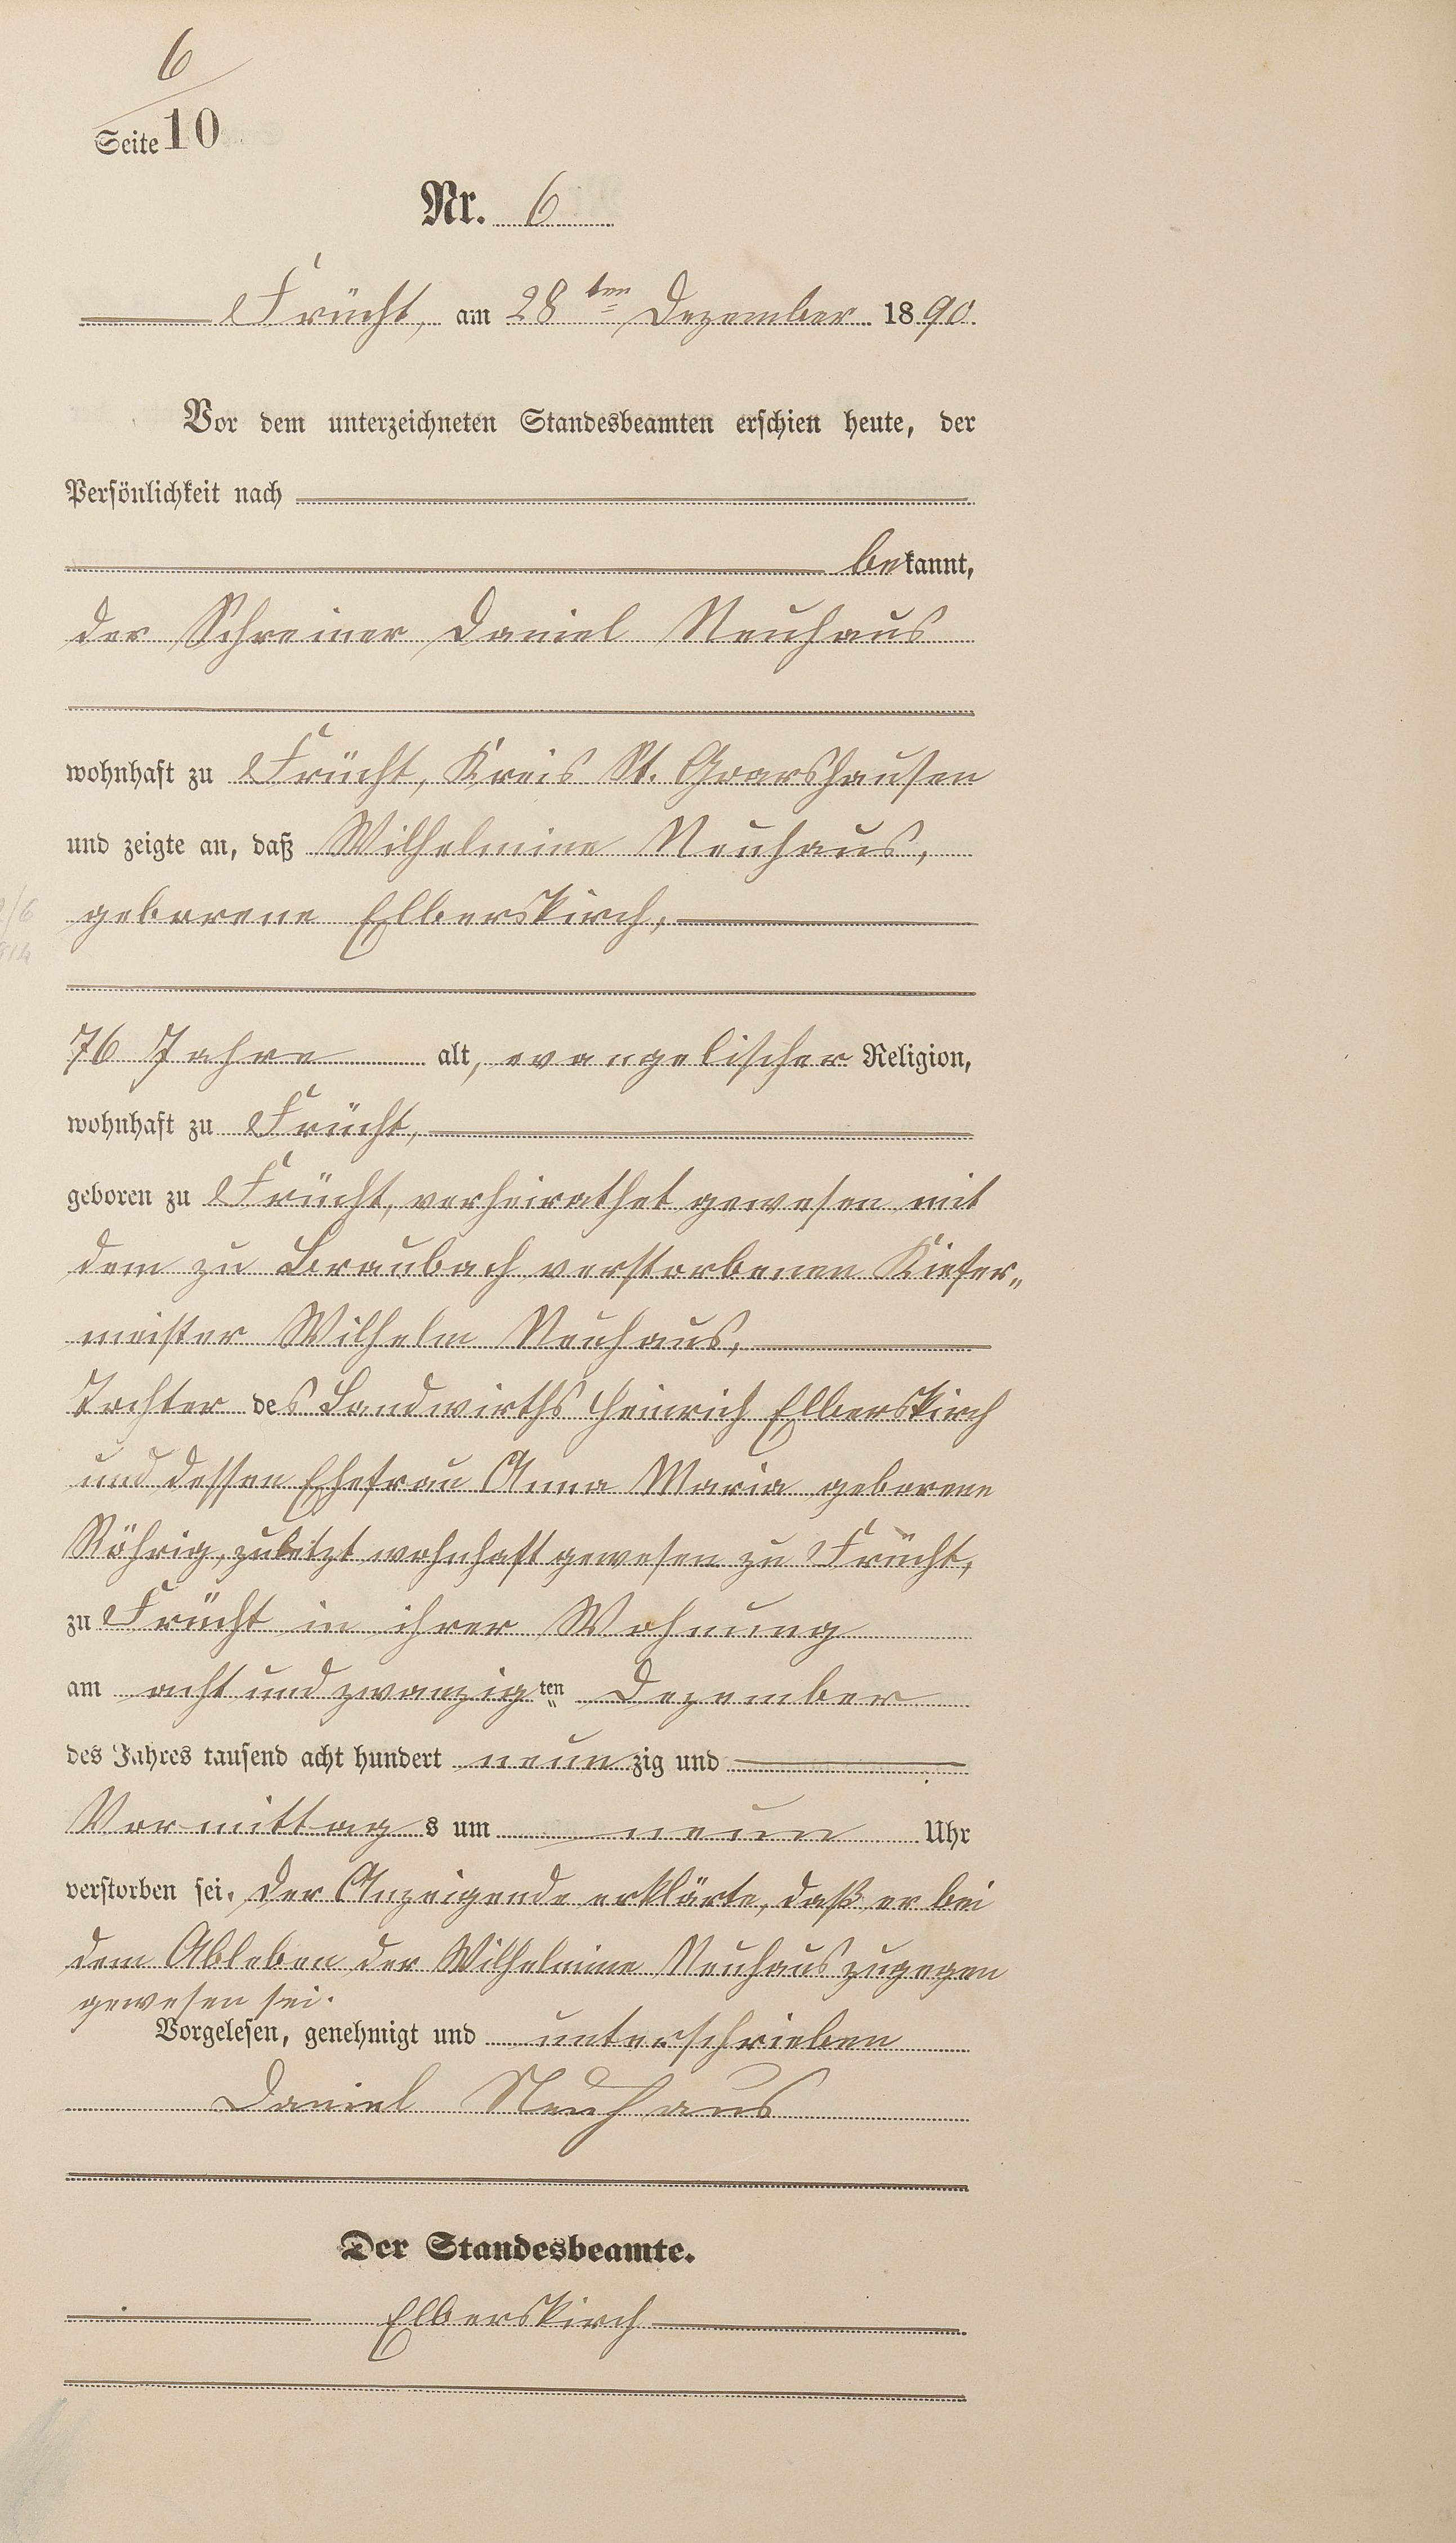 6
Seite 10
Nr. 6
Frücht, am 28ten Dezember 1890.
Vor dem unterzeichneten Standesbeamten erschien heute, der
Persönlichkeit nach
bekannt,
der Schreiner Daniel Neuhaus
wohnhaft zu Frücht, Kreis St. Goarshausen
und zeigte an, daß Wilhelmine Neuhaus,
geborene Elberskirch,
76 Jahre alt, evangelischer Religion,
wohnhaft zu Frücht,
geboren zu Frücht, verheirathet gewesen mit
dem zu Braubach verstorbenen Kiefer„
meister Wilhelm Neuhaus,
Tochter des Landwirths Heinrich Elberskirch
und dessen Ehefrau Anna Maria geborene
Röhrig, zuletzt wohnhaft gewesen zu Frücht,
zu Frücht in ihrer Wohnung
am acht und zwanzigten Dezember
des Jahres tausend acht hundert neunzig und
Vormittags um neun Uhr
verstorben sei. Der Anzeigende erklärte, daß er bei
dem Ableben der Wilhelmine Neuhaus zugegen
gewesen sei.
Vorgelesen, genehmigt und unterschrieben
Daniel Neuhaus
Der Standesbeamte.
Elberskirch